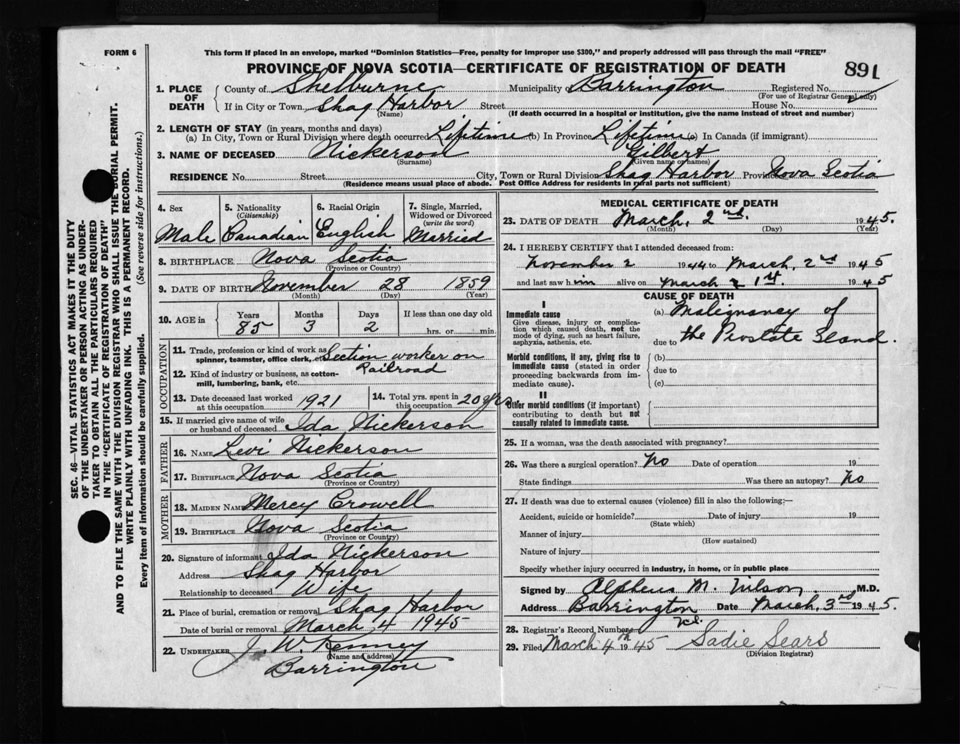 FORM 6
This form if placed in an envelope, marked "Dominion Statistics—Free, penalty for improper use $300," and properly addressed will pass through the mail "FREE"
PROVINCE OF NOVA SCOTIA—CERTIFICATE OF REGISTRATION OF DEATH
891
1. PLACE OF DEATH
County of Shelburne Municipality of Barrington Registered No.
(For use of Registrar General only)
If in City or Town, Shag Harbor Street House No.
(Name) (If death occurred in a hospital or institution, give the name instead of street and number)
2. LENGTH OF STAY (in years, months and days)
(a) In City, Town or Rural Division where death occurred Lifetime (b) In Province Lifetime (c) In Canada (if immigrant)
3. NAME OF DECEASED Nickerson Gilbert
(Surname) (Given name or names)
RESIDENCE No. Street City, Town or Rural Division Shag Harbor Province Nova Scotia
(Residence means usual place of abode. Post Office Address for residents in rural parts not sufficient)
SEC. 46—VITAL STATISTICS ACT MAKES IT THE DUTY
OF THE UNDERTAKER OR PERSON ACTING AS UNDER-
TAKER TO OBTAIN ALL THE PARTICULARS REQUIRED
IN THE "CERTIFICATE OF REGISTRATION OF DEATH"
AND TO FILE THE SAME WITH THE DIVISION REGISTRAR WHO SHALL ISSUE THE BURIAL PERMIT.
WRITE PLAINLY WITH UNFADING INK. THIS IS A PERMANENT RECORD.
Every item of information should be carefully supplied. (See reverse side for instructions.)
4. Sex 5. Nationality (Citizenship) 6. Racial Origin 7. Single, Married, Widowed or Divorced (write the word)
Male Canadian English Married
8. BIRTHPLACE Nova Scotia
(Province or Country)
9. DATE OF BIRTH November 28 1859
(Month) (Day) (Year)
10. AGE in Years Months Days If less than one day old
85 3 2 hrs. or min.
OCCUPATION
11. Trade, profession or kind of work as spinner, teamster, office clerk, etc. Section worker on
12. Kind of industry or business, as cotton-mill, lumbering, bank, etc. Railroad
13. Date deceased last worked at this occupation 1921 14. Total yrs. spent in this occupation 20 yrs
15. If married give name of wife or husband of deceased Ida Nickerson
FATHER
16. Name Levi Nickerson
17. Birthplace Nova Scotia
(Province or Country)
MOTHER
18. Maiden Name Mercy Crowell
19. Birthplace Nova Scotia
(Province or Country)
20. Signature of informant Ida Nickerson
Address Shag Harbor
Relationship to deceased Wife
21. Place of burial, cremation or removal Shag Harbor
Date of burial or removal March 4 1945
22. UNDERTAKER J. W. Kenney
(Name and address)
Barrington
MEDICAL CERTIFICATE OF DEATH
23. DATE OF DEATH March, 2nd. 1945.
(Month) (Day) (Year)
24. I HEREBY CERTIFY that I attended deceased from:
November 2 1944 to March, 2nd 1945
and last saw him alive on March 1st. 1945
CAUSE OF DEATH
I
Immediate cause
Give disease, injury or complication which caused death, not the mode of dying, such as heart failure, asphyxia, asthenia, etc.
(a) Malignancy of
due to the Prostate Gland.
Morbid conditions, if any, giving rise to immediate cause (stated in order proceeding backwards from immediate cause).
(b)
due to
(c)
II
Other morbid conditions (if important) contributing to death but not causally related to immediate cause.
25. If a woman, was the death associated with pregnancy?
26. Was there a surgical operation? No Date of operation 19
State findings Was there an autopsy? No
27. If death was due to external causes (violence) fill in also the following:—
Accident, suicide or homicide? Date of injury 19
(State which)
Manner of injury
(How sustained)
Nature of injury
Specify whether injury occurred in industry, in home, or in public place
Signed by Alpheus M. Wilson M.D.
Address Barrington Date March, 3rd 1945.
28. Registrar's Record Number
29. Filed March 4th 1945 Sadie Sears
(Division Registrar)